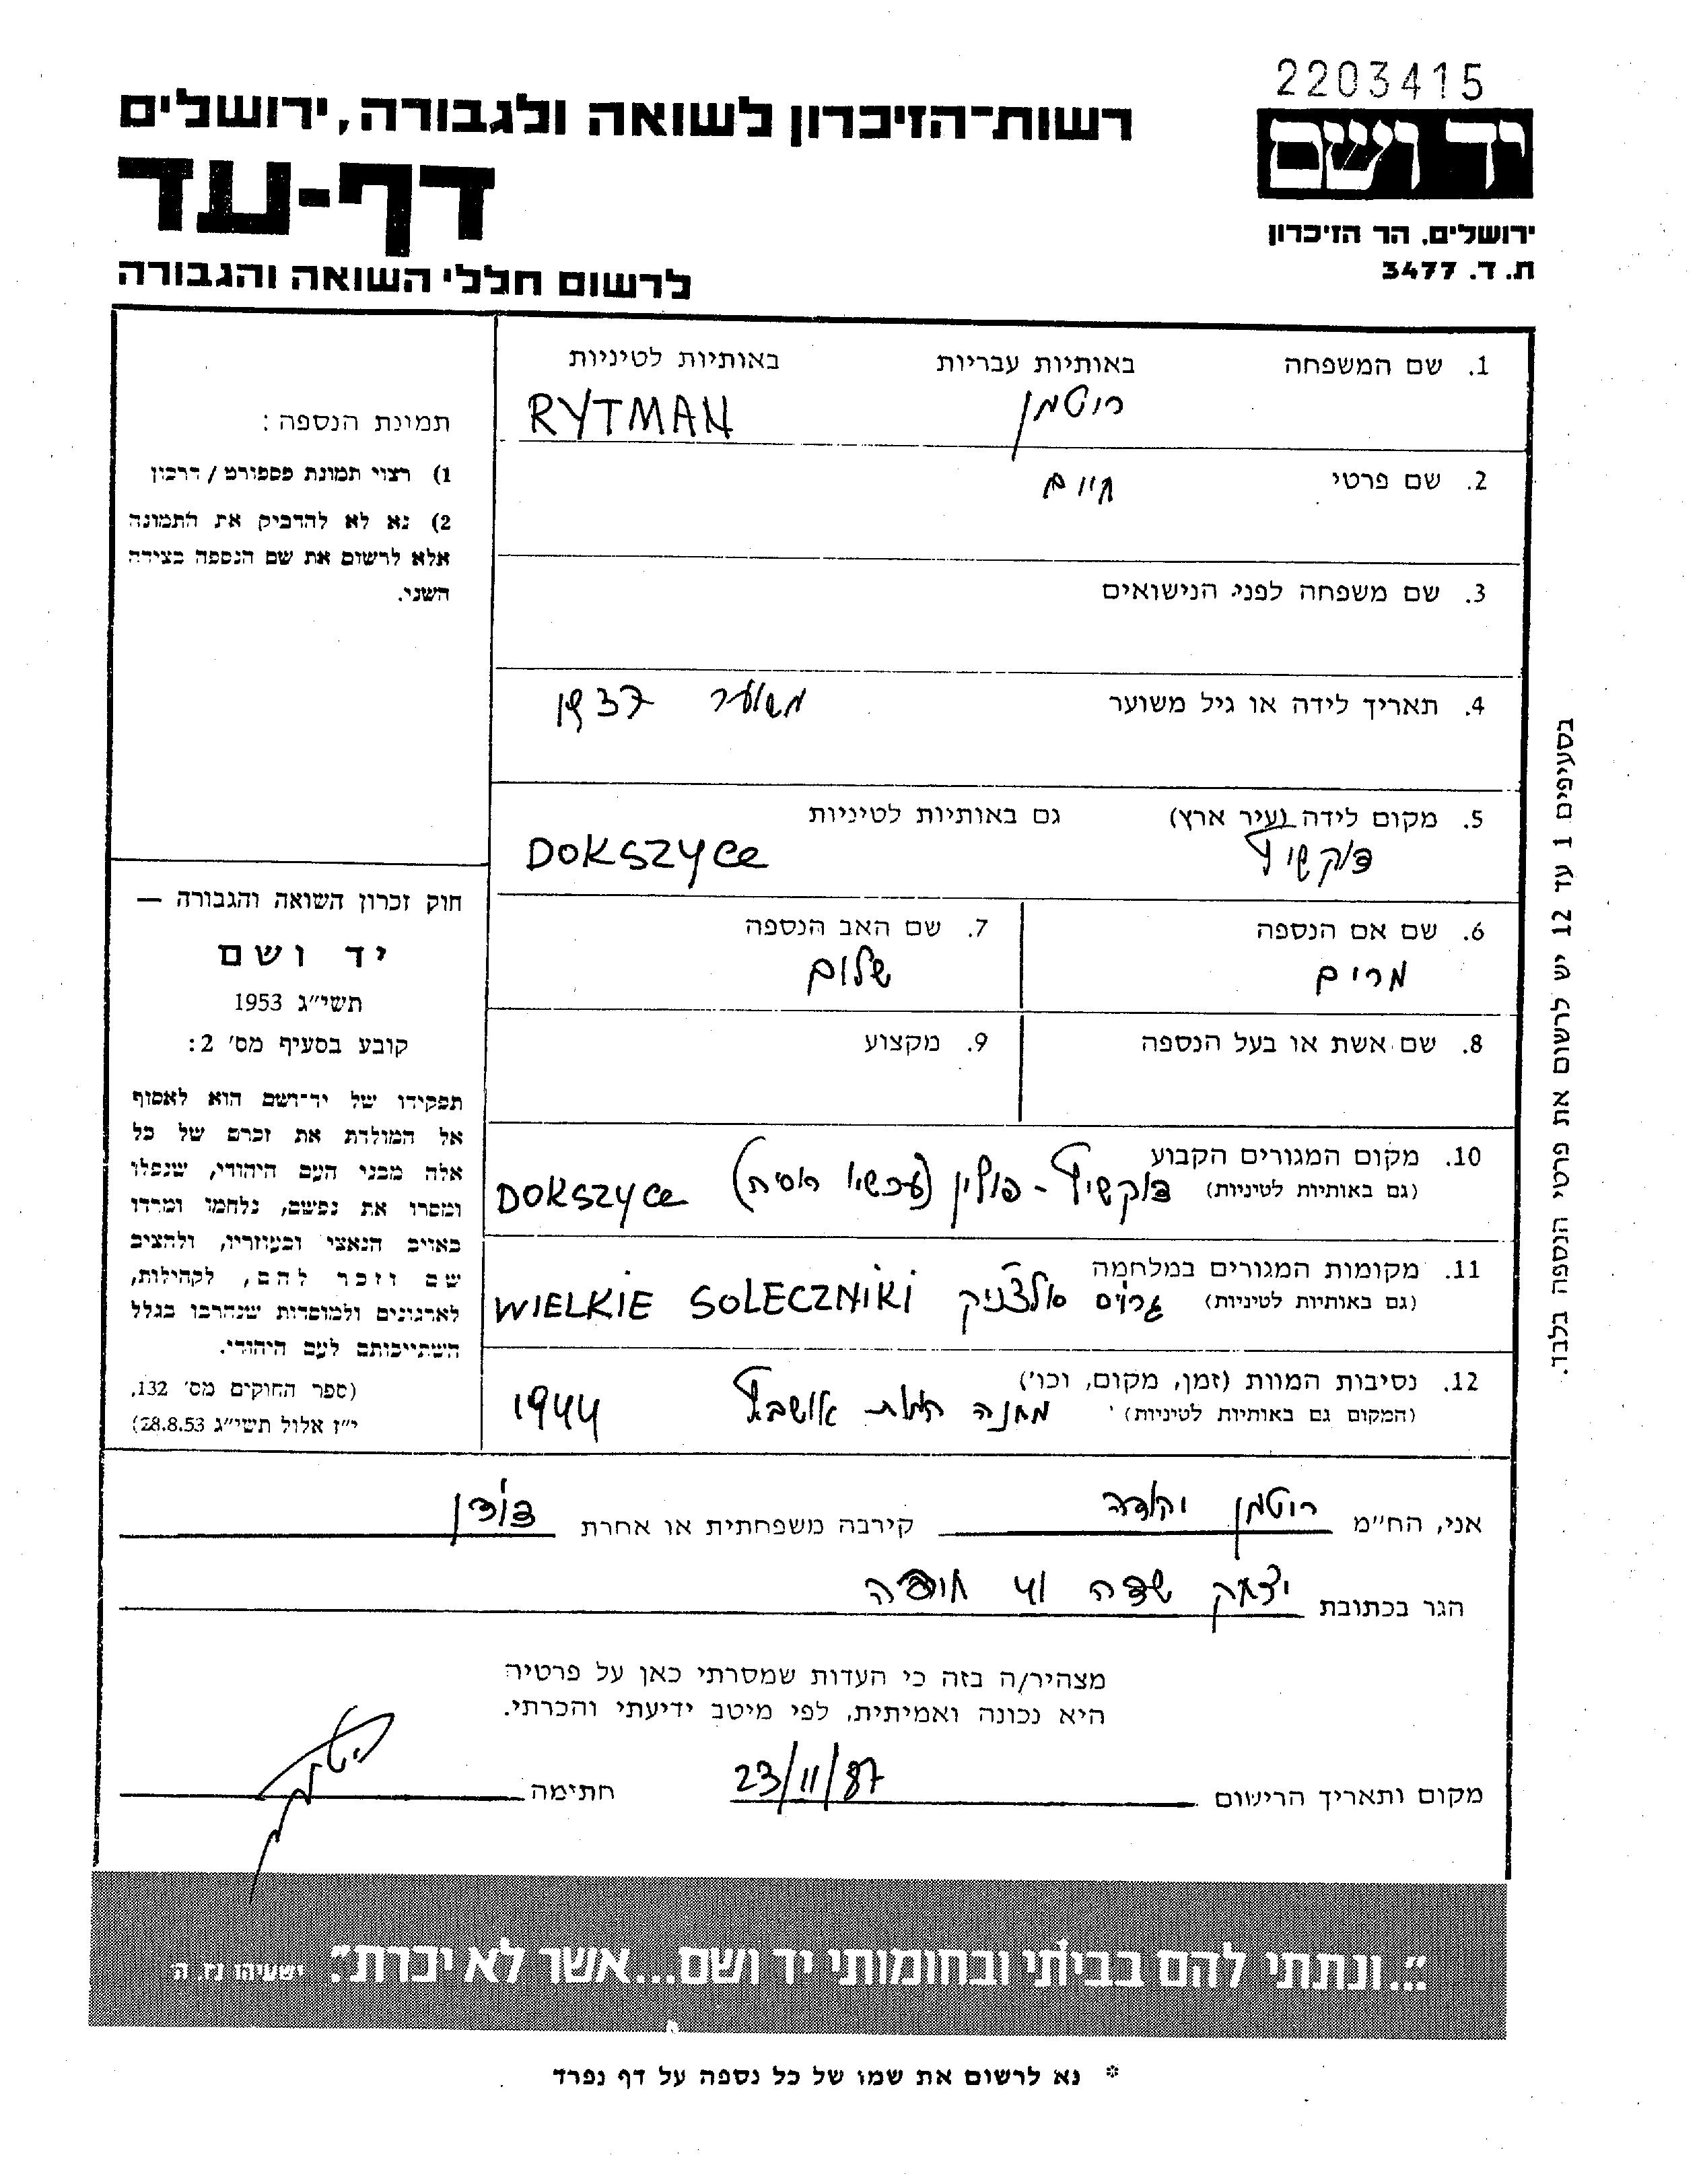 2203415
רשות-הזיכרון לשואה ולגבורה, ירושלים
יד ושם
דף-עד
ירושלים, הר הזיכרון
ת. ד. 3477
לרשום חללי השואה והגבורה
1. שם המשפחה באותיות עבריות באותיות לטיניות
רוטמן RYTMAN
2. שם פרטי
חיים
3. שם משפחה לפני הנישואים
4. תאריך לידה או גיל משוער
משוער 1937
5. מקום לידה (עיר ארץ) גם באותיות לטיניות
דוקשיץ DOKSZYCE
6. שם אם הנספה 7. שם האב הנספה
מרים שלום
8. שם אשת או בעל הנספה 9. מקצוע
10. מקום המגורים הקבוע
(גם באותיות לטיניות) דוקשיץ - פולין (עכשיו רוסיה) DOKSZYCE
11. מקומות המגורים במלחמה
(גם באותיות לטיניות) גרויס סולצניק WIELKIE SOLECZNIKI
12. נסיבות המוות (זמן, מקום, וכו')
(המקום גם באותיות לטיניות) מחנה המות אושביץ 1944
תמונת הנספה:
1) רצוי תמונת פספורט / דרכון
2) נא לא להדביק את התמונה
אלא לרשום את שם הנספה בצידה
השני.
חוק זכרון השואה והגבורה —
יד ושם
תשי״ג 1953
קובע בסעיף מס' 2:
תפקידו של יד־ושם הוא לאסוף
אל המולדת את זכרם של כל
אלה מבני העם היהודי, שנפלו
ומסרו את נפשם, נלחמו ומרדו
באויב הנאצי ובעוזריו, ולהציב
שם וזכר להם, לקהילות,
לארגונים ולמוסדות שנחרבו בגלל
השתייכותם לעם היהודי.
(ספר החוקים מס' 132,
י״ז אלול תשי״ג 28.8.53)
בסעיפים 1 עד 12 יש לרשום את פרטי הנספה בלבד.
אני, הח״מ רוטמן קירבה משפחתית או אחרת דודן
הגר בכתובת יצחק שדה חיפה
מצהיר/ה בזה כי העדות שמסרתי כאן על פרטיה
היא נכונה ואמיתית, לפי מיטב ידיעתי והכרתי.
מקום ותאריך הרישום 23/11/87 חתימה
״...ונתתי להם בביתי ובחומותי יד ושם...אשר לא יכרת״. ישעיהו נו, ה
* נא לרשום את שמו של כל נספה על דף נפרד